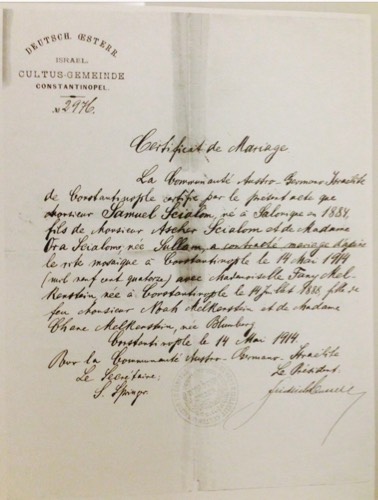 DEUTSCH. OESTERR.
ISRAEL.
CULTUS-GEMEINDE
CONSTANTINOPEL.
№ 2976.
Certificat de Mariage
La Communauté Austro-Germano-Israélite
de Constantinople certifie par le présent acte que
Monsieur Samuel Scialom, né à Salonique en 1884,
fils de Monsieur Ascher Scialom et de Madame
Scialom, née Sullam, a contracté mariage d'après
le rite mosaïque à Constantinople le 14 Mai 1914
(mil neuf cent quatorze) avec Mademoiselle Fany Mel-
kenstein, née à Constantinople le fille de
feu Monsieur Noah Melkenstein et de Madame
Chane Melkenstein, née Blumberg.
Constantinople le 14 Mai 1914.
Pour la Communauté Austro-Germano-Israélite
Le Secrétaire:
Le Président
S. Springer